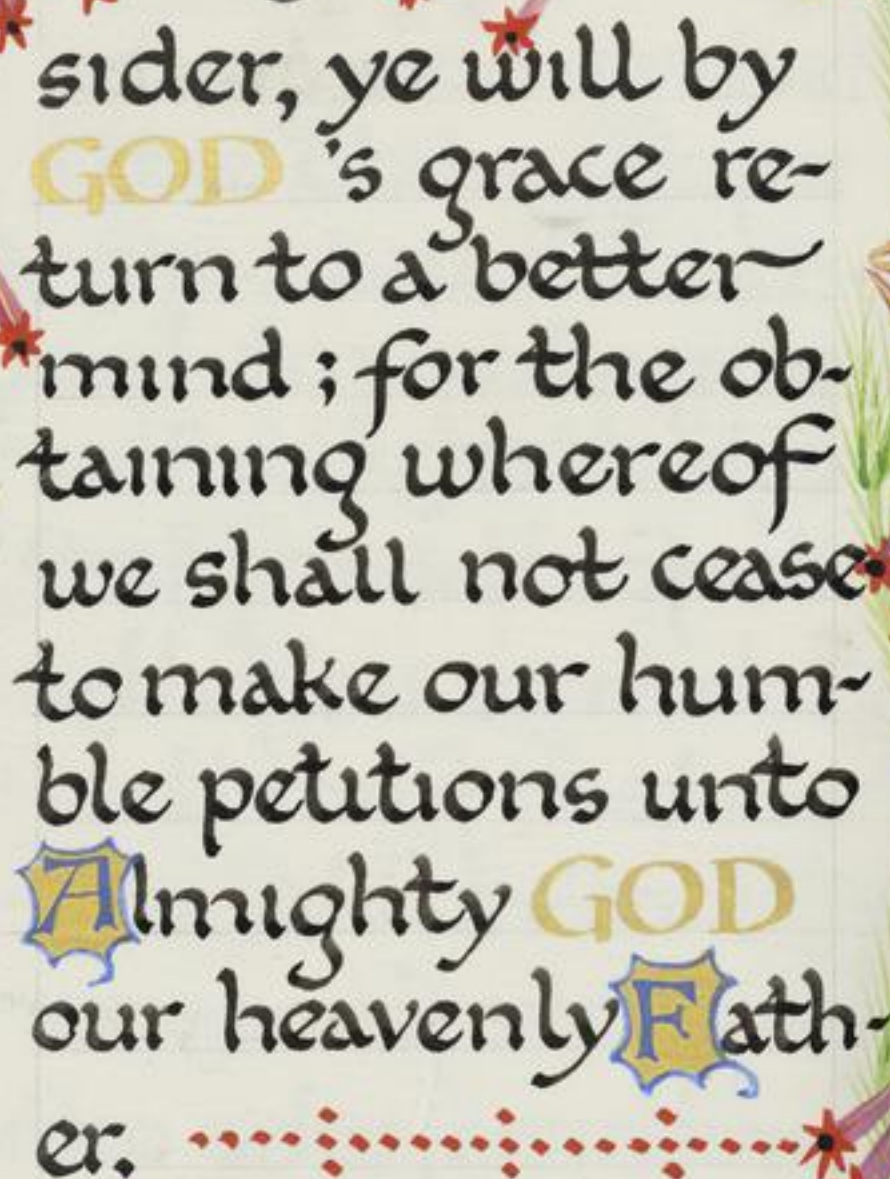 sider, ye will by
GOD 's grace re-
turn to a better
mind ; for the ob-
taining whereof
we shall not cease
to make our hum-
ble petitions unto
Almighty GOD
our heavenly Fath-
er.